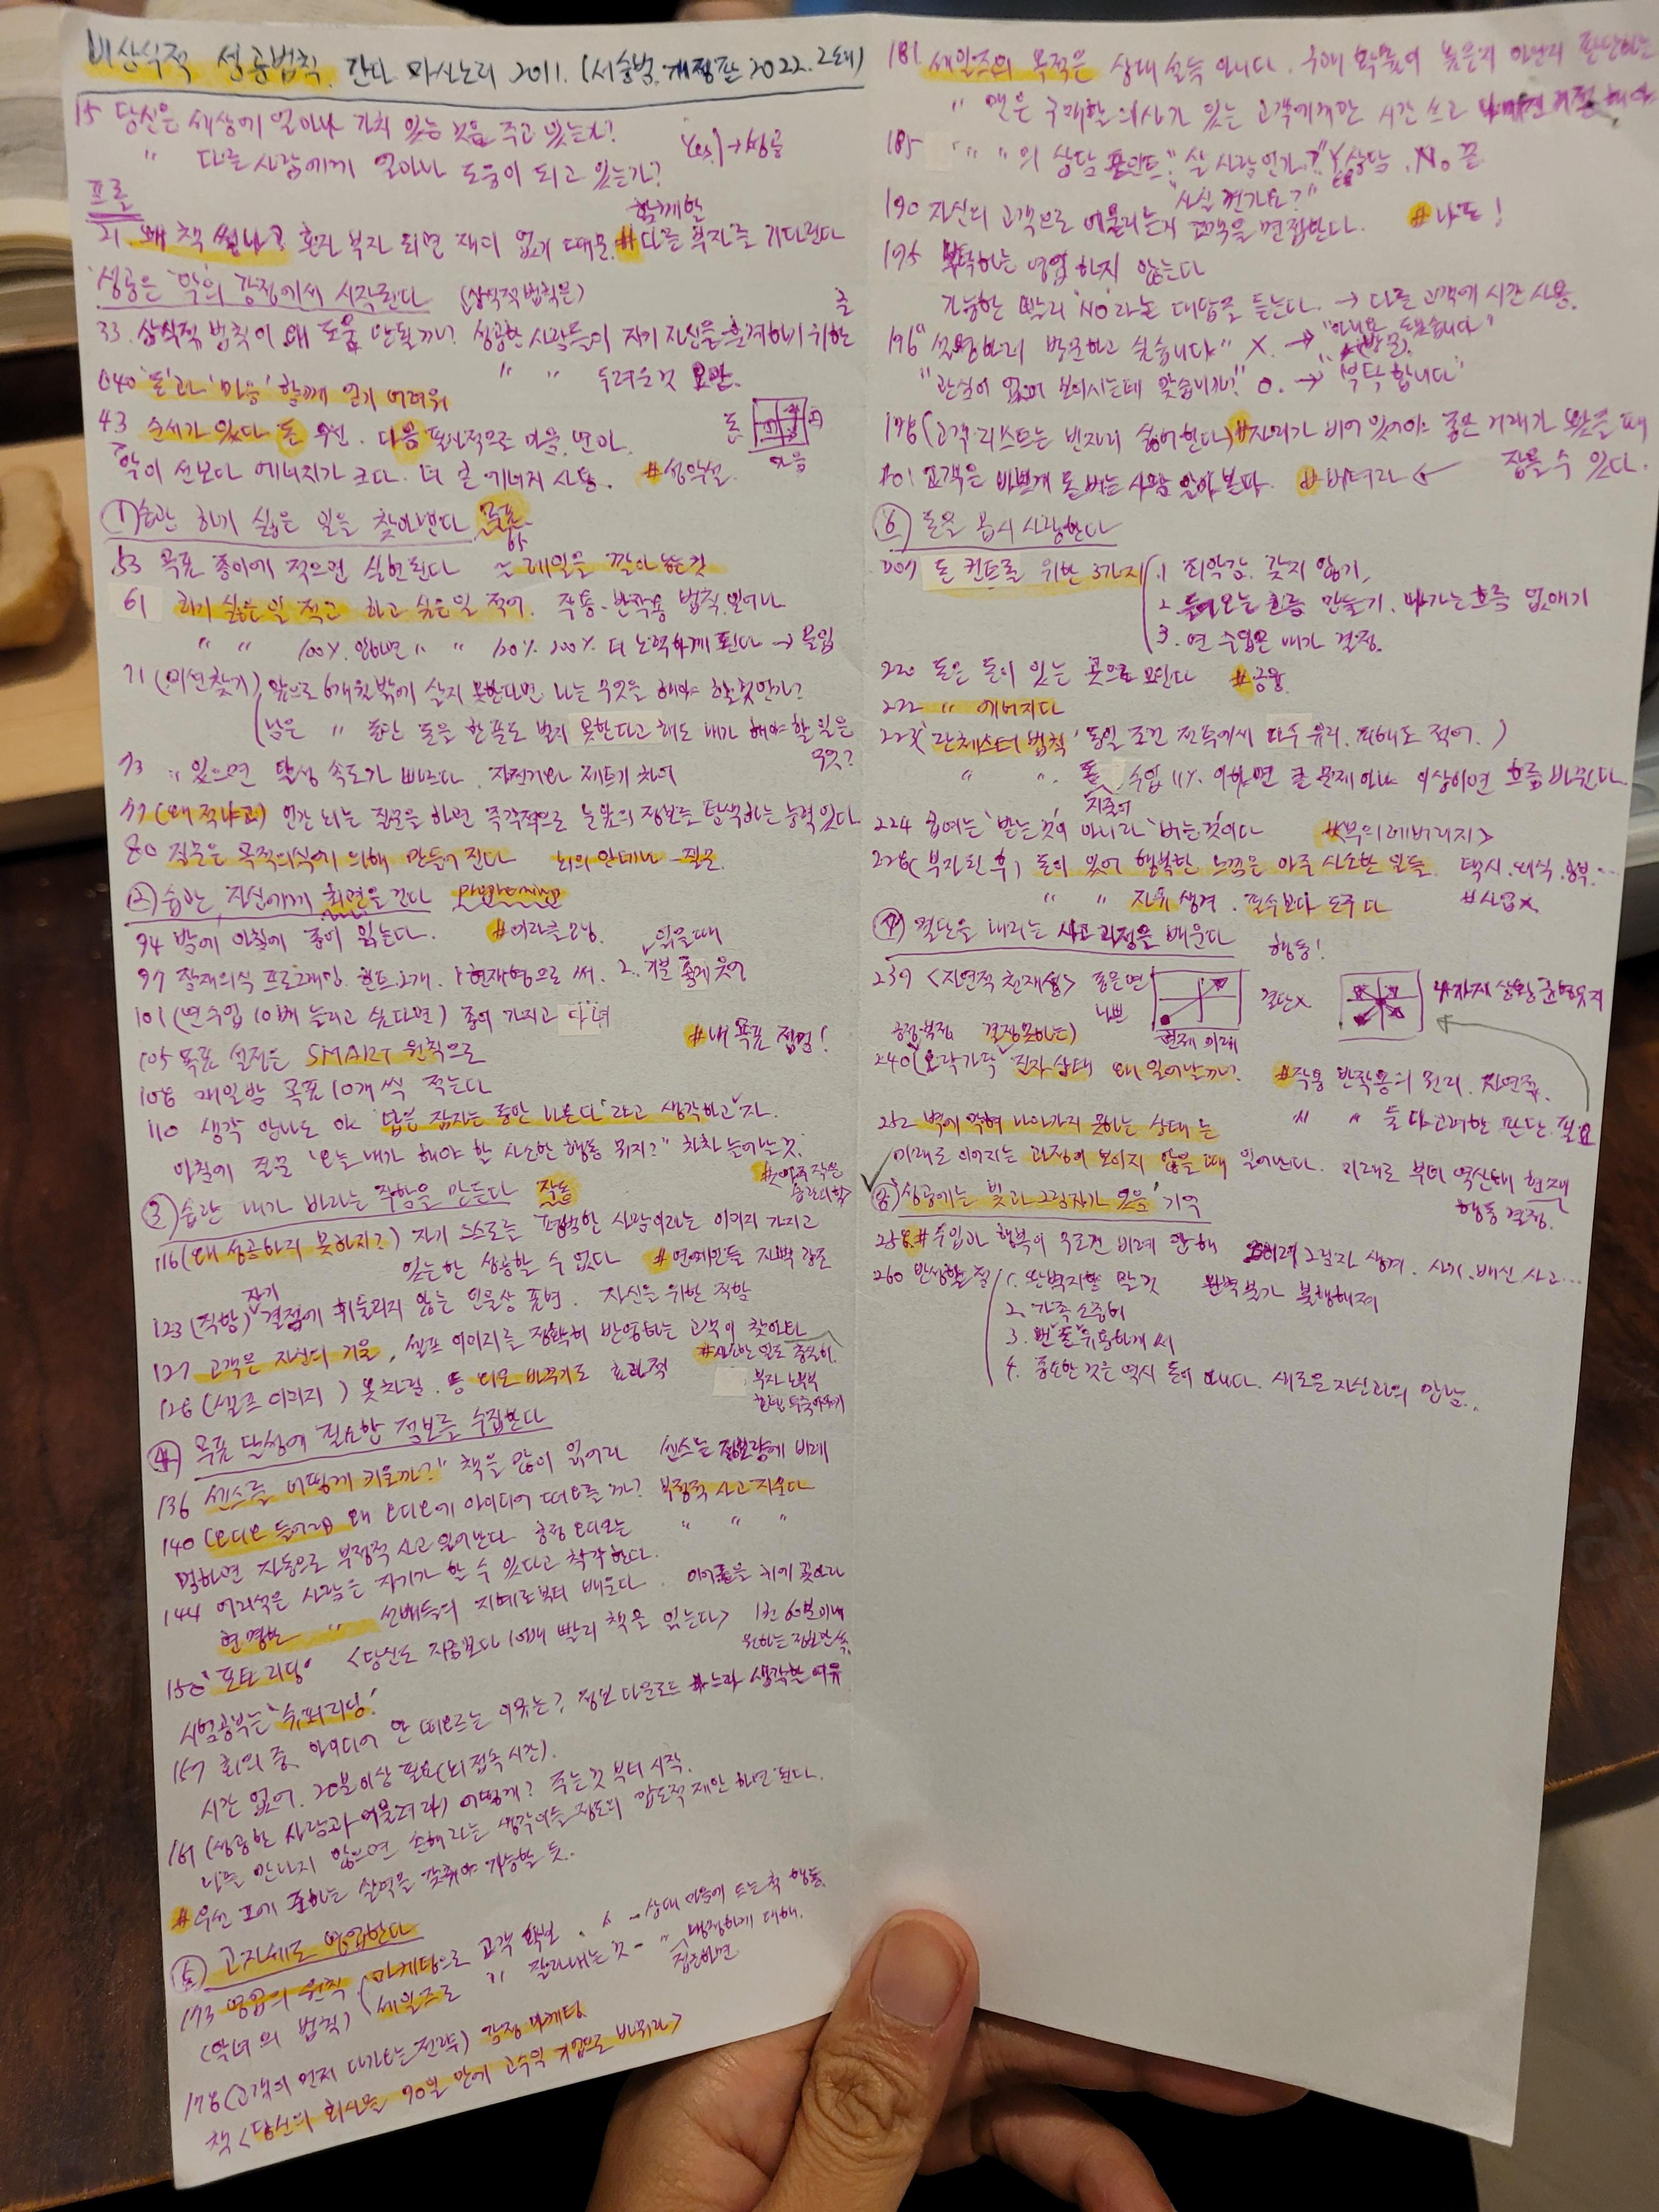 비상식적 성공법칙. 간다 마사노리 2011. (서승범. 개정판 2022. 2쇄)
15 당신은 세상에 얼마나 가치 있는 것을 주고 있는가?
" 다른 사람에게 얼마나 도움이 되고 있는가? Yes) → 성공
프롤
21 왜 책 썼냐? 혼자 부자 되면 재미 없기 때문. #다른 부자를 기다린다
함께할
성공은 '악'의 감정에서 시작된다 (상식적 법칙은)
33. 상식적 법칙이 왜 도움 안될까? 성공한 사람들이 자기 자신을 훈계하기 위한 글
" " 두려운 것
040 '돈'과 '마음' 함께 얻기 어려워
43 순서가 있다 돈 우선. 다음 필사적으로 마음 연마.
돈
마음
악이 선보다 에너지가 크다. 더 큰 에너지 사용. #성악설
① 습관 하기 싫은 일을 찾아낸다 목표
53 목표 종이에 적으면 실현된다 는 레일을 깔아 놓는 것
61 하기 싫은 일 적고 하고 싶은 일 적어. 작용·반작용 법칙 일어나
" " 100% 안하면 " " 120% 200% 더 노력하게 된다 → 몰입
71 (미션찾기) 앞으로 6개월밖에 살지 못한다면 나는 무엇을 해야 할 것인가?
남은 " 동안 돈을 한 푼도 벌지 못한다고 해도 내가 해야 할 일은 무엇?
73 " 있으면 달성 속도가 빠르다. 자전거와 제트기 차이
77 (왜 적냐고) 인간 뇌는 질문을 하면 즉각적으로 눈앞의 정보를 탐색하는 능력 있다
80 질문은 목적의식에 의해 만들어 진다 뇌의 안테나 - 질문
② 습관, 자신에게 최면을 건다
94 밤에 아침에 종이 읽는다. #미라클모닝
97 잠재의식 프로그래밍 힌트 2개. 1 현재형으로 써. 2. 읽을때 기분 좋게 웃어
101 (연수입 10배 늘리고 싶다면) 종이 가지고 다녀
105 목표 설정은 SMART 원칙으로 #내 목표 점검!
108 매일밤 목표 10개씩 적는다
110 생각 안나도 OK '답은 잠자는 동안 나온다'라고 생각하고 자.
아침에 질문 "오늘 내가 해야 할 사소한 행동 뭐지?" 차차 늘어날 것.
#아주 작은 습관의 힘>
③ 습관 내가 바라는 직함을 만든다 작동
116 (왜 성공하지 못하지?) 자기 스스로는 평범한 사람이라는 이미지 가지고
있는한 성공할 수 없다 #연예인들
123 (직함) 자기 결점에 휘둘리지 않는 인물상 표현. 자신을 위한 직함
127 고객은 자신의 거울, 셀프 이미지를 정확히 반영하는 고객이 찾아온다
128 (셀프 이미지) 옷차림. 등 외모 바꾸기도 효과적
#사소한 일도 중요히.
④ 목표 달성에 필요한 정보를 수집한다
136 센스를 어떻게 키울까?" 책을 많이 읽어라 센스는 정보량에 비례
140 (오디오 들어라) 왜 오디오에 아이디어 떠오를까? 부정적 사고 지운다
멍하면 자동으로 부정적 사고 일어난다 긍정 오디오는 " " "
144 어리석은 사람은 자기가 할 수 있다고 착각한다.
현명한 " 선배들의 지혜로부터 배운다. 이어폰을 귀에 꽂아라
150 '포토 리딩' <당신도 지금보다 10배 빨리 책을 읽는다> 1권 60분이내
원하는 정보만 쏙.
시험공부는 '슈퍼리딩'
157 회의 중, 아이디어 안 떠오르는 이유는? 정보 다운로드 하느라 생각할 여유
시간 없어. 20분이상 필요 (뇌 접속 시간).
161 (성공한 사람과 어울려라) 어떻게? 주는 것부터 시작.
나를 만나지 않으면 손해라는 생각이들 정도의 압도적 제안 하면 된다.
#우선 그에 준하는 실력을 갖춰야 가능할 듯.
⑤ 고자세로 영업한다
173 영업의 원칙 (마케팅으로 고객 확보. 상대 마음에 드는 척 행동.
(악녀의 법칙) 세일즈로 " 잘라내는 것 - " 접근하면 냉정하게 대해.
178 (고객이 먼저 다가오는 전략) 감정 마케팅
책 <당신의 회사를 90일 만에 고수익 기업으로 바꿔라>
181 세일즈의 목적은 상대 설득 아니다. 구매 확률이 높은지 아닌지 판단하는
" 맨은 구매할 의사가 있는 고객에게만 시간 쓰고
185 " " 의 상담 포인트. "살 사람인가?" Y 상담. No 끝
"사실 건가요?"
190 자신의 고객으로 어울리는지 고객을 면접한다. #나도!
195 부탁하는 영업 하지 않는다
가능한 빨리 'NO'라는 대답을 듣는다. → 다른 고객에 시간 사용.
196 "설명하러 방문하고 싶습니다" X. →
"관심이 없어 보이시는데 맞습니까?" O. → "부탁합니다"
198 (고객 리스트는 빈자리 있어야한다) #자리가 비어 있어야 좋은 거래가 왔을 때
잡을 수 있다.
201 고객은 바쁘게 돈 버는 사람 알아 본다. #버텨라
⑥ 돈을 몹시 사랑한다
207 돈 컨트롤 위한 3가지 1. 죄악감 갖지 않기.
2. 들어오는 흐름 만들기. 나가는 흐름 없애기
3. 연 수입은 내가 결정.
220 돈은 돈이 있는 곳으로 모인다 #공용
222 " 에너지다
223 ('란체스터 법칙' 동일 조건 전투에서 다수 유리. 피해도 적어.)
224 급여는 '받는 것'이 아니라 '버는 것'이다 #<부의 레버리지>
228 (부자된 후) 돈이 있어 행복한 느낌은 아주 사소한 일들. 택시. 외식. 공부...
" " 자유 생겨. #사업X
⑦ 결단을 내리는 사고 과정을 배운다 행동!
239 <자연적 천재성> 좋은면
나쁜
현재 미래
결단X
4가지 상황 균형유지
긍정·부정 결정못하는)
240 (오락가락 진자상태 왜 일어날까? #작용 반작용의 원리. 자연적.
" " 둘 다 고려한 판단 필요
252 벽에 막혀 나아가지 못하는 상태는
미래로 이어지는 과정이 보이지 않을 때 일어난다. 미래로 부터 역산해 현재
행동 결정.
⑧ '성공에는 빛과 그림자가 있음' 기억
258 #수입과 행복이 무조건 비례 안해 그림자 생겨. 사기. 배신 사고...
260 반성할 점 1. 완벽지향 말 것
2. 가족 소중히
3. 번 '돈' 유용하게 써
4. 중요한 것은 역시 돈이 아니다. 새로운 자신과의 만남..